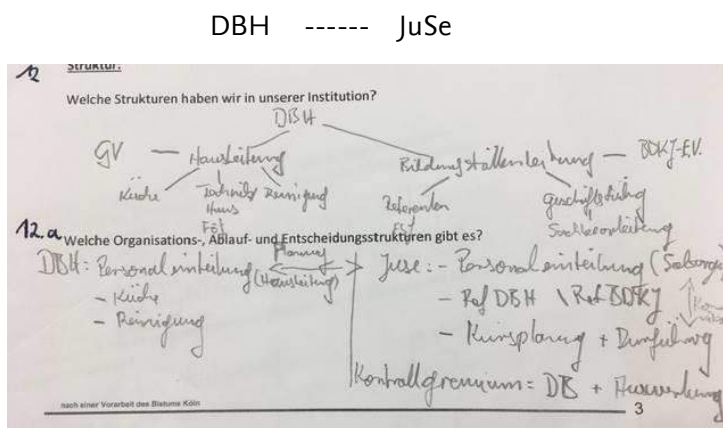 DBH ------ JuSe
12 Struktur:
Welche Strukturen haben wir in unserer Institution?
DBH
GV — Hausleitung Bildungsstättenleitung — BDKJ-EV.
Küche Technik Reinigung Referenten Geschäftsführung
Haus
FÖJ FSJ Sachbearbeitung
12.a Welche Organisations-, Ablauf- und Entscheidungsstrukturen gibt es?
DBH: Personaleinteilung (Hausleitung) Juse: - Personaleinteilung
- Küche - Ref DBH \ Ref BDKJ
- Reinigung - Kursplanung + Durchführung
Kontrollgremium = DB + Auswertung
nach einer Vorarbeit des Bistums Köln
3